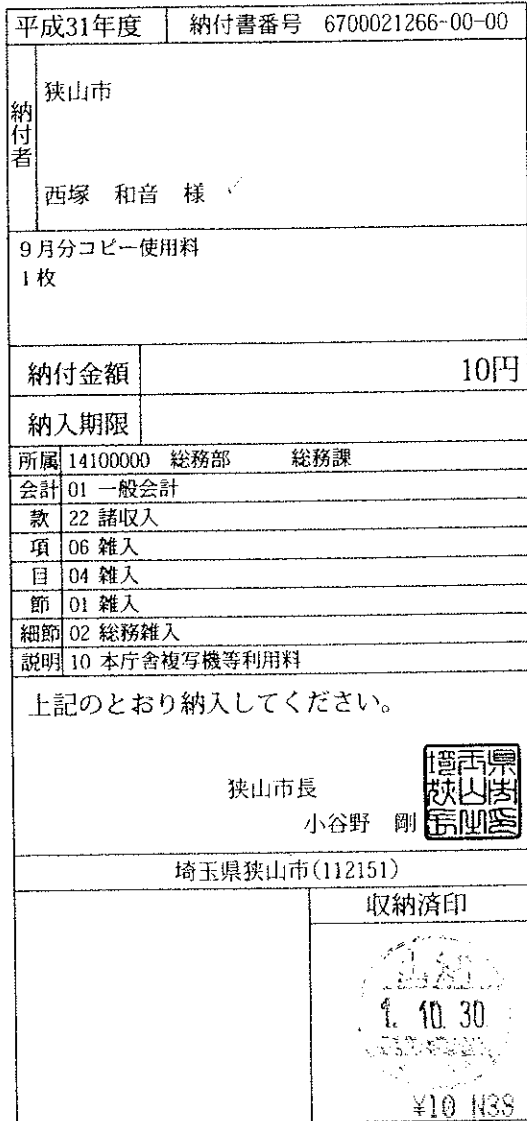 平成31年度 納付書番号 6700021266-00-00
納付者
狭山市
西塚 和音 様
9月分コピー使用料
1枚
納付金額 10円
納入期限
所属 14100000 総務部 総務課
会計 01 一般会計
款 22 諸収入
項 06 雑入
目 04 雑入
節 01 雑入
細節 02 総務雑入
説明 10 本庁舎複写機等利用料
上記のとおり納入してください。
狭山市長
小谷野 剛
埼玉県狭山市(112151)
収納済印
1. 10. 30
¥10 N38